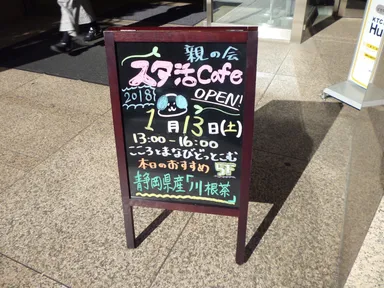 親の会
スタ活Cafe
OPEN!
2018
1月13日(土)
13:00-16:00
こころとまなびどっとこむ
本日のおすすめ
5F
静岡県産「川根茶」
KTC
Hu